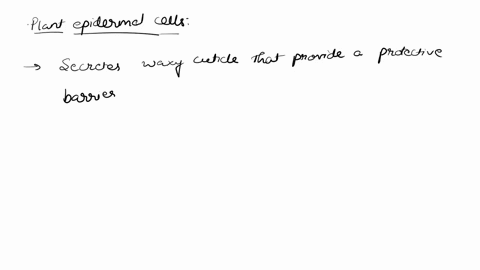 Plant epidermal cells:
→ Secretes waxy cuticle that provide a protective
barrier